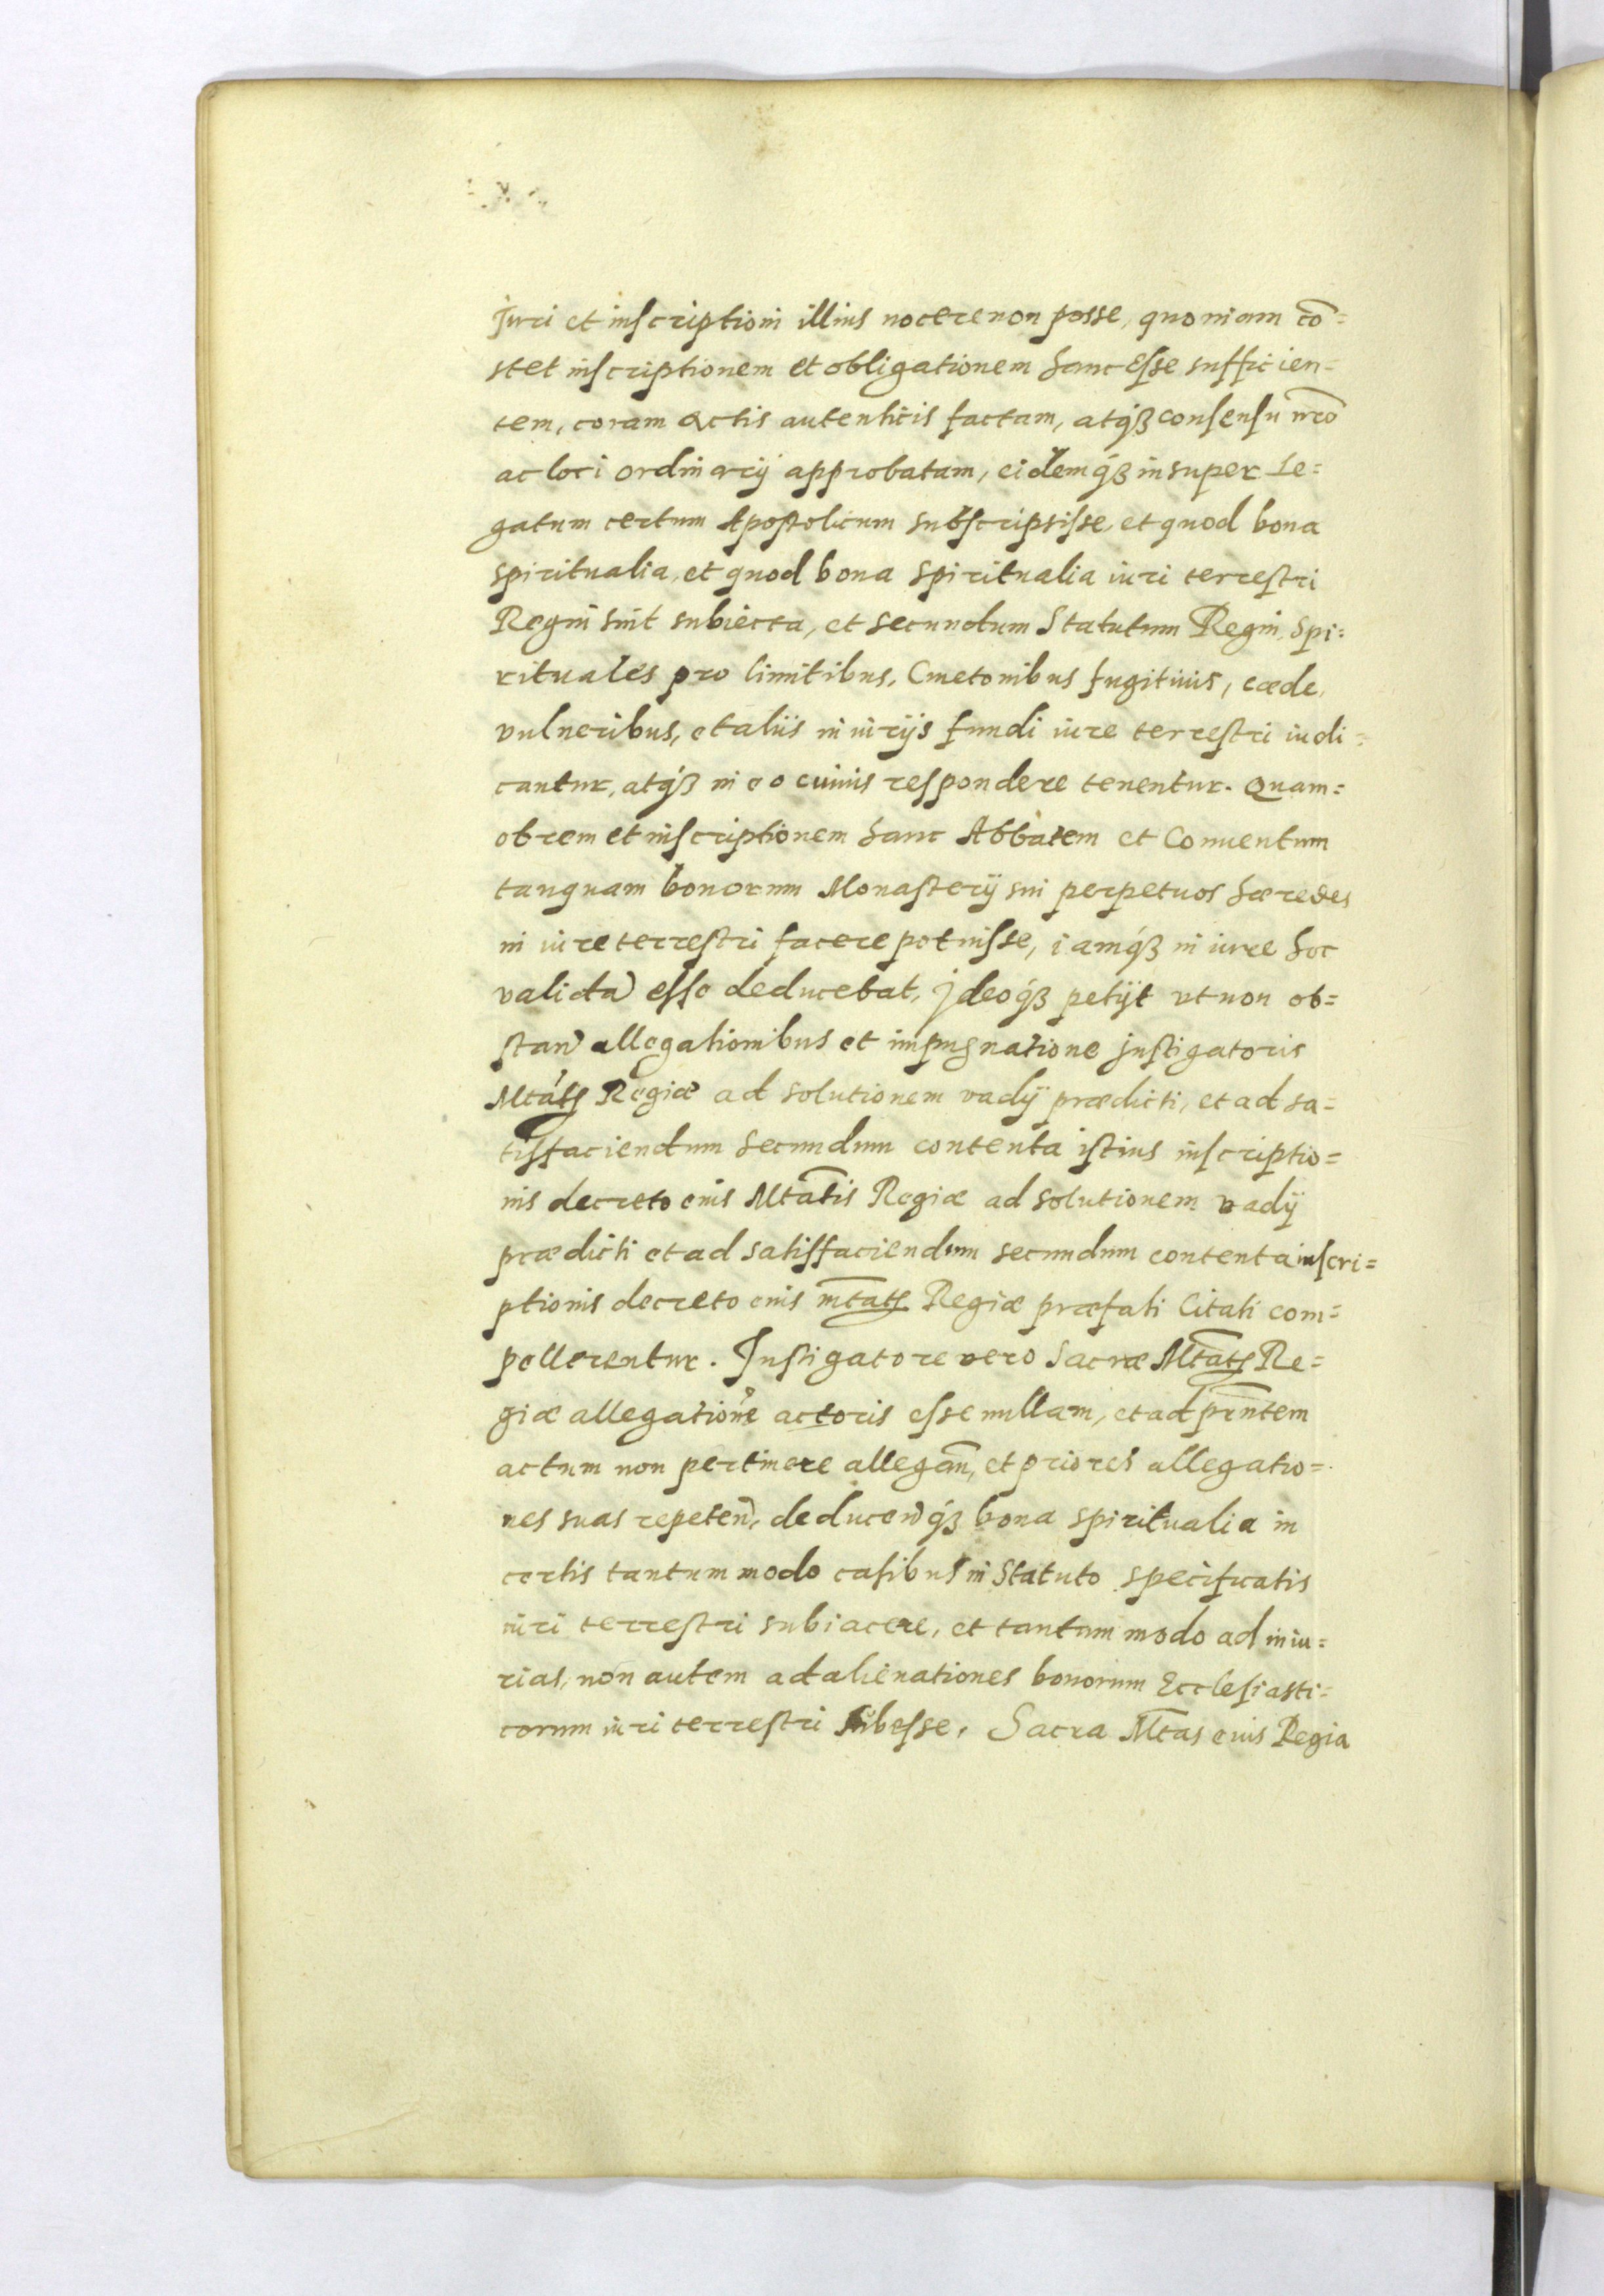 Juri et inscriptioni illius nocere non posse, quoniam cō=
stet inscriptionem et obligationem hanc esse sufficien=
tem, coram Actis autenticis factam, atq́ꝫ consensu nr̄o
ac loci ordinarij approbatam, eidemq́ꝫ insuper Le=
gatum certum Apostolicum subscripsisse, et quod bona
spiritualia, et quod bona spiritualia iuri terrestri
Regni sint subiecta, et secundum Statutum Regni, Spi=
rituales pro limitibus, Cmetonibus fugitiuis, cæde,
vulneribus, et aliis iniurijs fundi iure terrestri iudi=
cantur, atq́ꝫ in eo cuiuis respondere tenentur. Quam=
obrem et inscriptionem hanc Abbatem et Conuentum
tanquam bonorum Monasterij sui perpetuos hæredes
in iure terrestri facere potuisse, iamq́ꝫ in iure hoc
validā esse deducebat, Jdeoq́ꝫ petijt vt non ob=
stan̄ allegationibus et impugnatione Jnstigatoris
Mtat̄s Regiæ ad solutionem vadij prædicti, et ad sa=
tisfaciendum secundum contenta istius inscriptio=
nis decreto eius Mtātis Regiæ ad solutionem vadij
prædicti et ad satisfaciendum secundum contenta inscri=
ptionis decreto eius Mtāts Regiæ præfati Citati com=
pellerentur. Jnstigatore vero Sacræ Mtāts Re=
giæ allegationē actoris esse nullam, et ad prn̄tem
actum non pertinere allegan̄, et priores allegatio=
nes suas repeten̄, deducen̄q́ꝫ bona spiritualia in
certis tantummodo casibus in Statuto specificatis
iuri terrestri subiacere, et tantummodo ad iniu=
rias, non autem ad alienationes bonorum Ecclesiasti=
corum iuri terrestri subesse. Sacra Mtās eius Regia